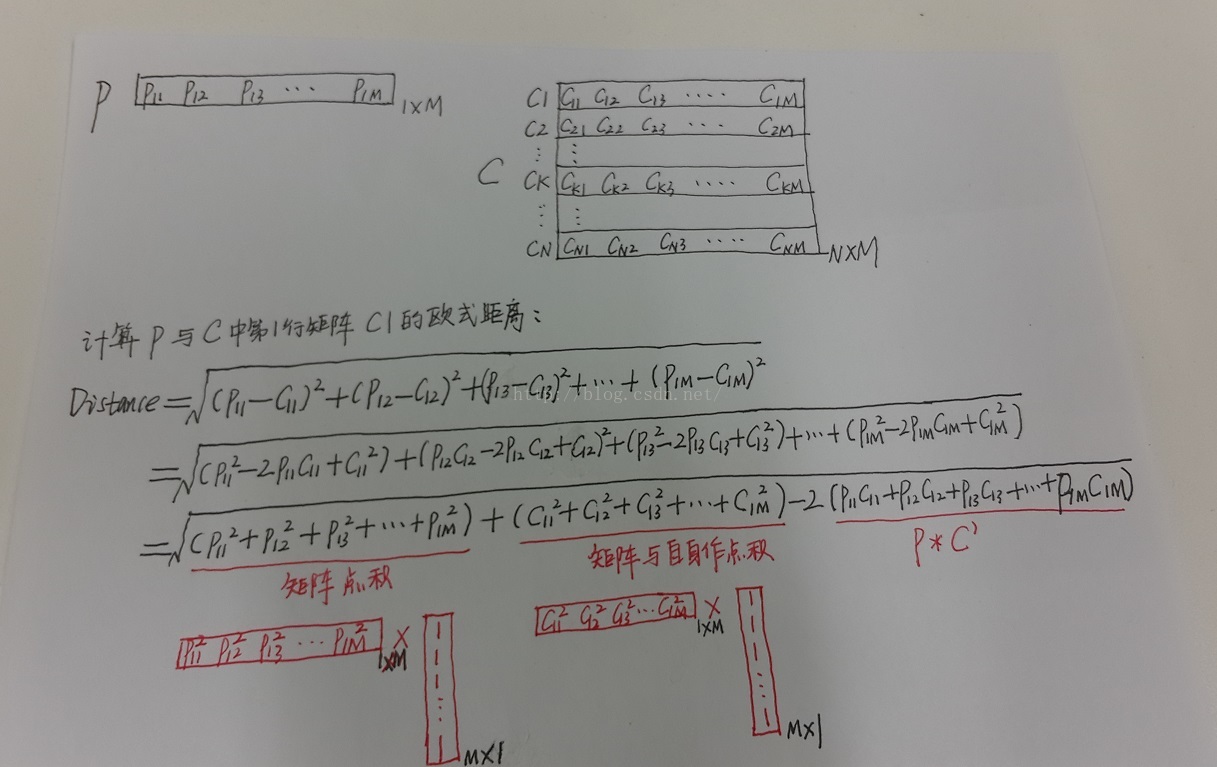 P P₁₁ P₁₂ P₁₃ ··· P₁M 1×M
C
C1 C₁₁ C₁₂ C₁₃ ···· C₁M
C2 C₂₁ C₂₂ C₂₃ ··· C₂M
⋮ ⋮
CK CK₁ CK₂ CK₃ ···· CKM
⋮ ⋮
CN CN₁ CN₂ CN₃ ···· CNM N×M
计算 P 与 C 中第1行矩阵 C1 的欧式距离:
Distance=√(P₁₁-C₁₁)²+(P₁₂-C₁₂)²+(P₁₃-C₁₃)²+···+(P₁M-C₁M)²
http://blog.csdn.net/
=√(P₁₁²-2P₁₁C₁₁+C₁₁²)+(P₁₂C₁₂-2P₁₂C₁₂+C₁₂)²+(P₁₃²-2P₁₃C₁₃+C₁₃²)+···+(P₁M²-2P₁MC₁M+C₁M²)
=√(P₁₁²+P₁₂²+P₁₃²+···+P₁M²)+(C₁₁²+C₁₂²+C₁₃²+···+C₁M²)-2(P₁₁C₁₁+P₁₂C₁₂+P₁₃C₁₃+···+P₁MC₁M)
矩阵点积 矩阵与自身作点积 P*C'
P₁₁² P₁₂² P₁₃² ··· P₁M² 1×M × 1 1 ⋮ 1 M×1
C₁₁² C₁₂² C₁₃² ··· C₁M² 1×M × 1 1 1 ⋮ 1 M×1